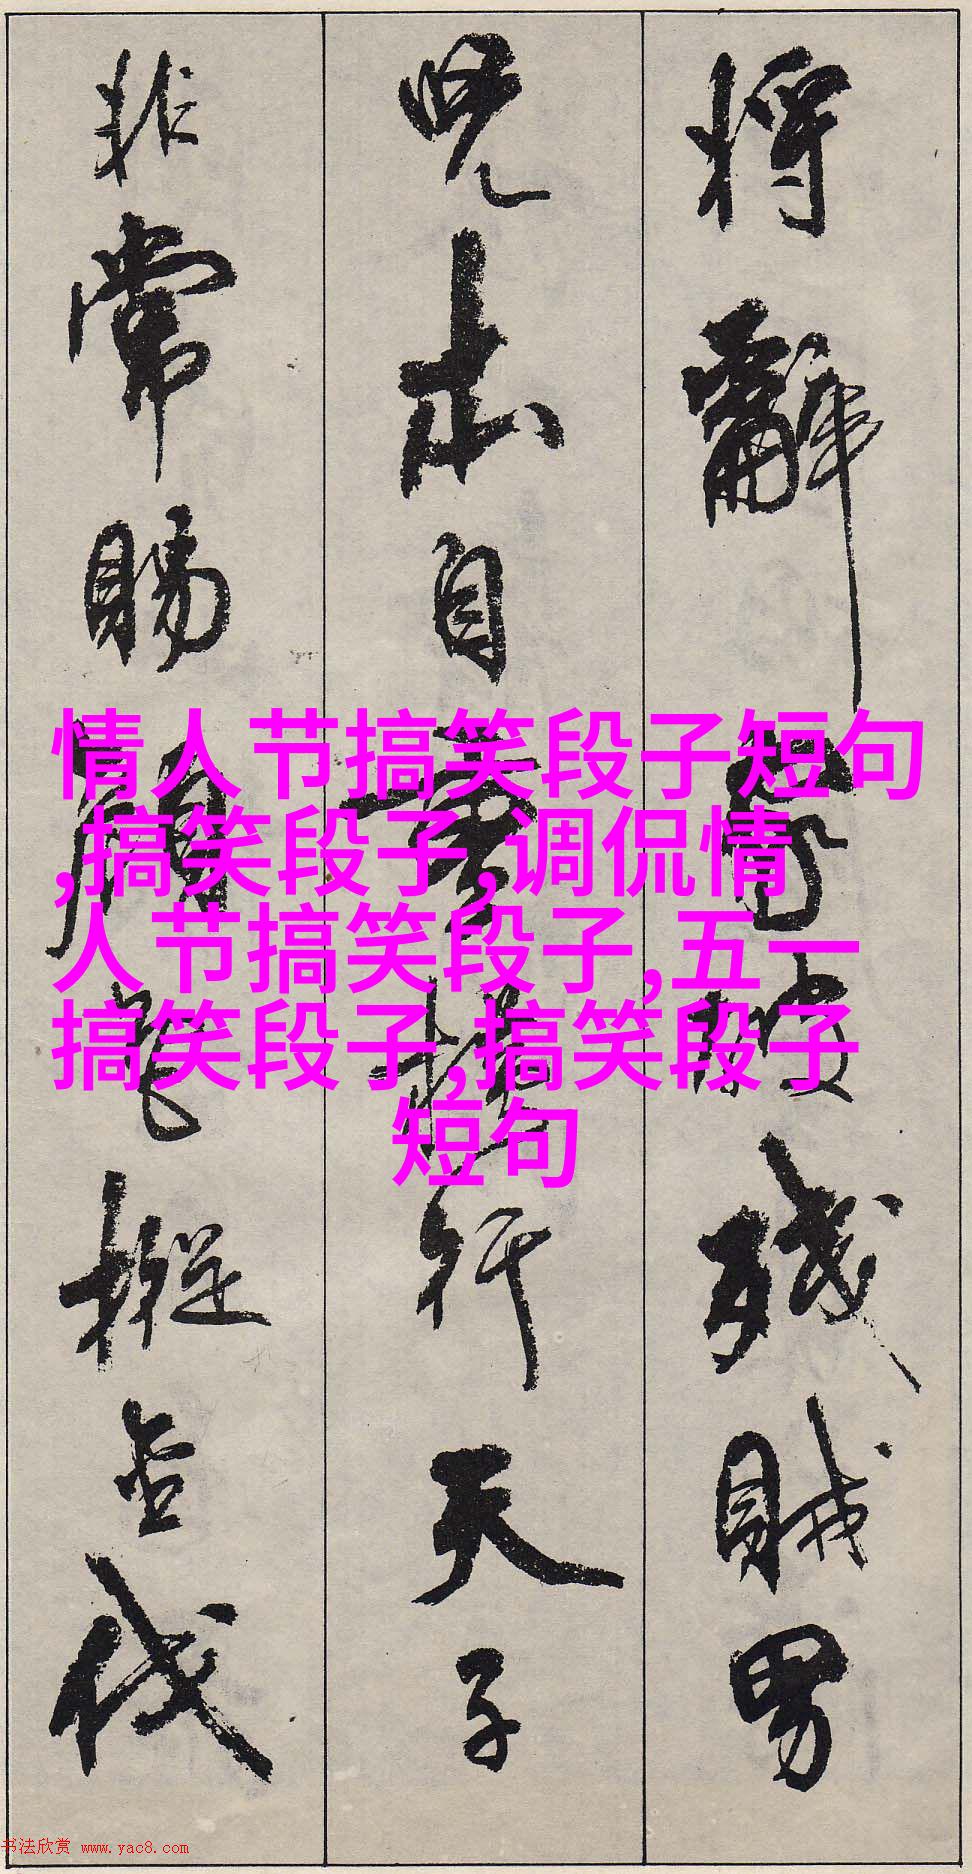 将辞岭破残贼男
儿本自重横行天子
非常赐颜色摐金伐
情人节搞笑段子短句
,搞笑段子,调侃情
人节搞笑段子,五一
搞笑段子,搞笑段子
短句
书法欣赏 www.yac8.com